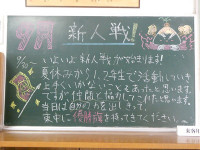 9月 新人戦!
9/10〜 いよいよ新人戦が始まります!
夏休みから1,2年生で活動していき
上手くいかないこともあったと思います。
ですが仲間と協力してきたと思います。
当日は自分の力を出しきって、
東中に優勝旗を持ってきてください。